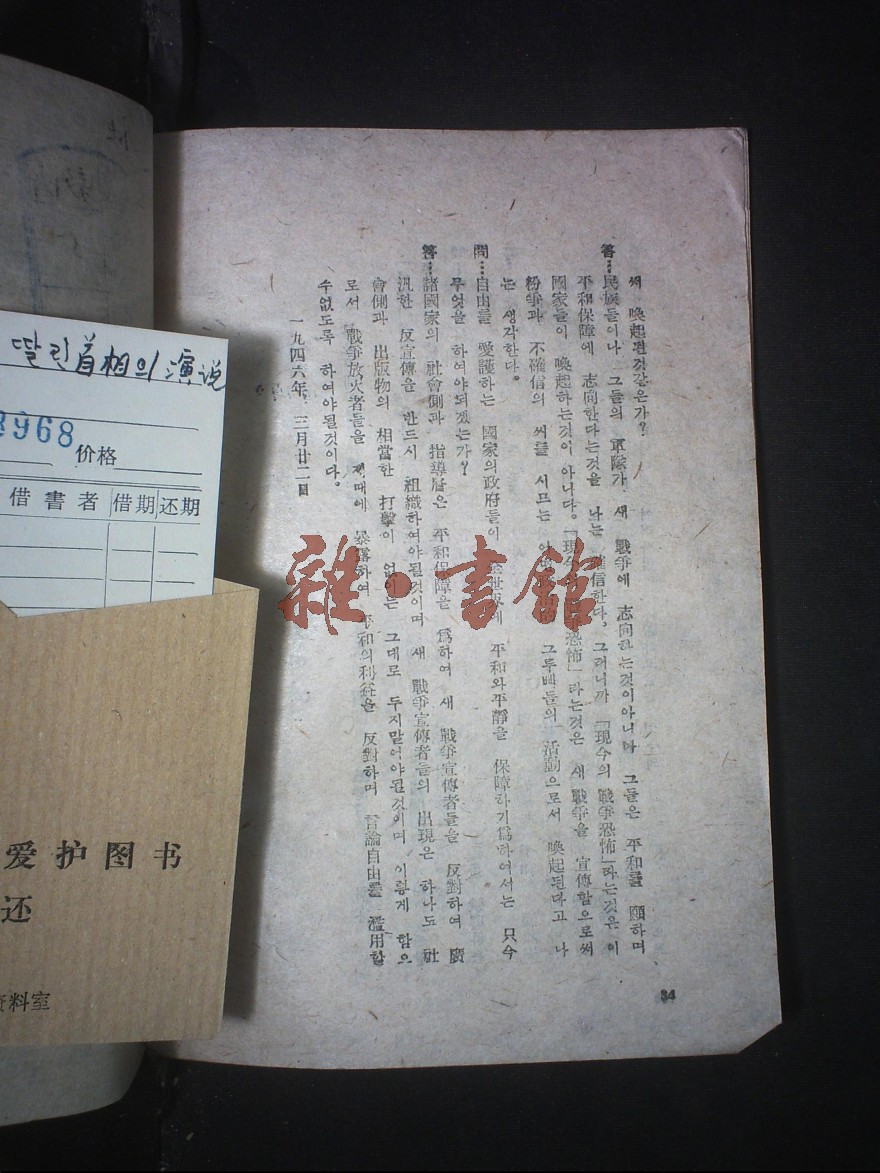 써 喚起된것같은가?
答…民族들이나 그들의 軍隊가 새 戰爭에 志向하는것이아니라 그들은 平和를 願하며
平和保障에 志向한다는것을 나는 確信한다。그러니까 「現今의 戰爭恐怖」라는것은 이
國家들이 喚起하는것이 아니다。「現今의 戰爭恐怖」라는것은 새 戰爭을 宣傳함으로써
粉爭과 不確信의 씨를 시므는 그루빠들의 活動으로서 喚起된다고 나
는 생각한다。
問…自由를 愛護하는 國家의政府들이 全世界에 平和와平靜을 保障하기爲하여서는 只今
무엇을 하여야되겠는가?
答…諸國家의 社會側과 指導層은 平和保障을 爲하여 새 戰爭宣傳者들을 反對하여 廣
汎한 反宣傳을 반드시 組織하여야될것이며 새 戰爭宣傳者들의 出現은 하나도 社
會側과 出版物의 相當한 打擊이 없이는 그대로 두지말어야될것이며 이렇게 함으
로서 「戰爭放火者들을 제때에 暴露하여 平和의利益을 反對하며 言論自由를 濫用할
수없도록 하여야될것이다。
一九四六年、三月廿二日
34
雜·書館
딸린首相의 演说
8968
价格
借書者 借期 还期
爱护图书
还
资料室